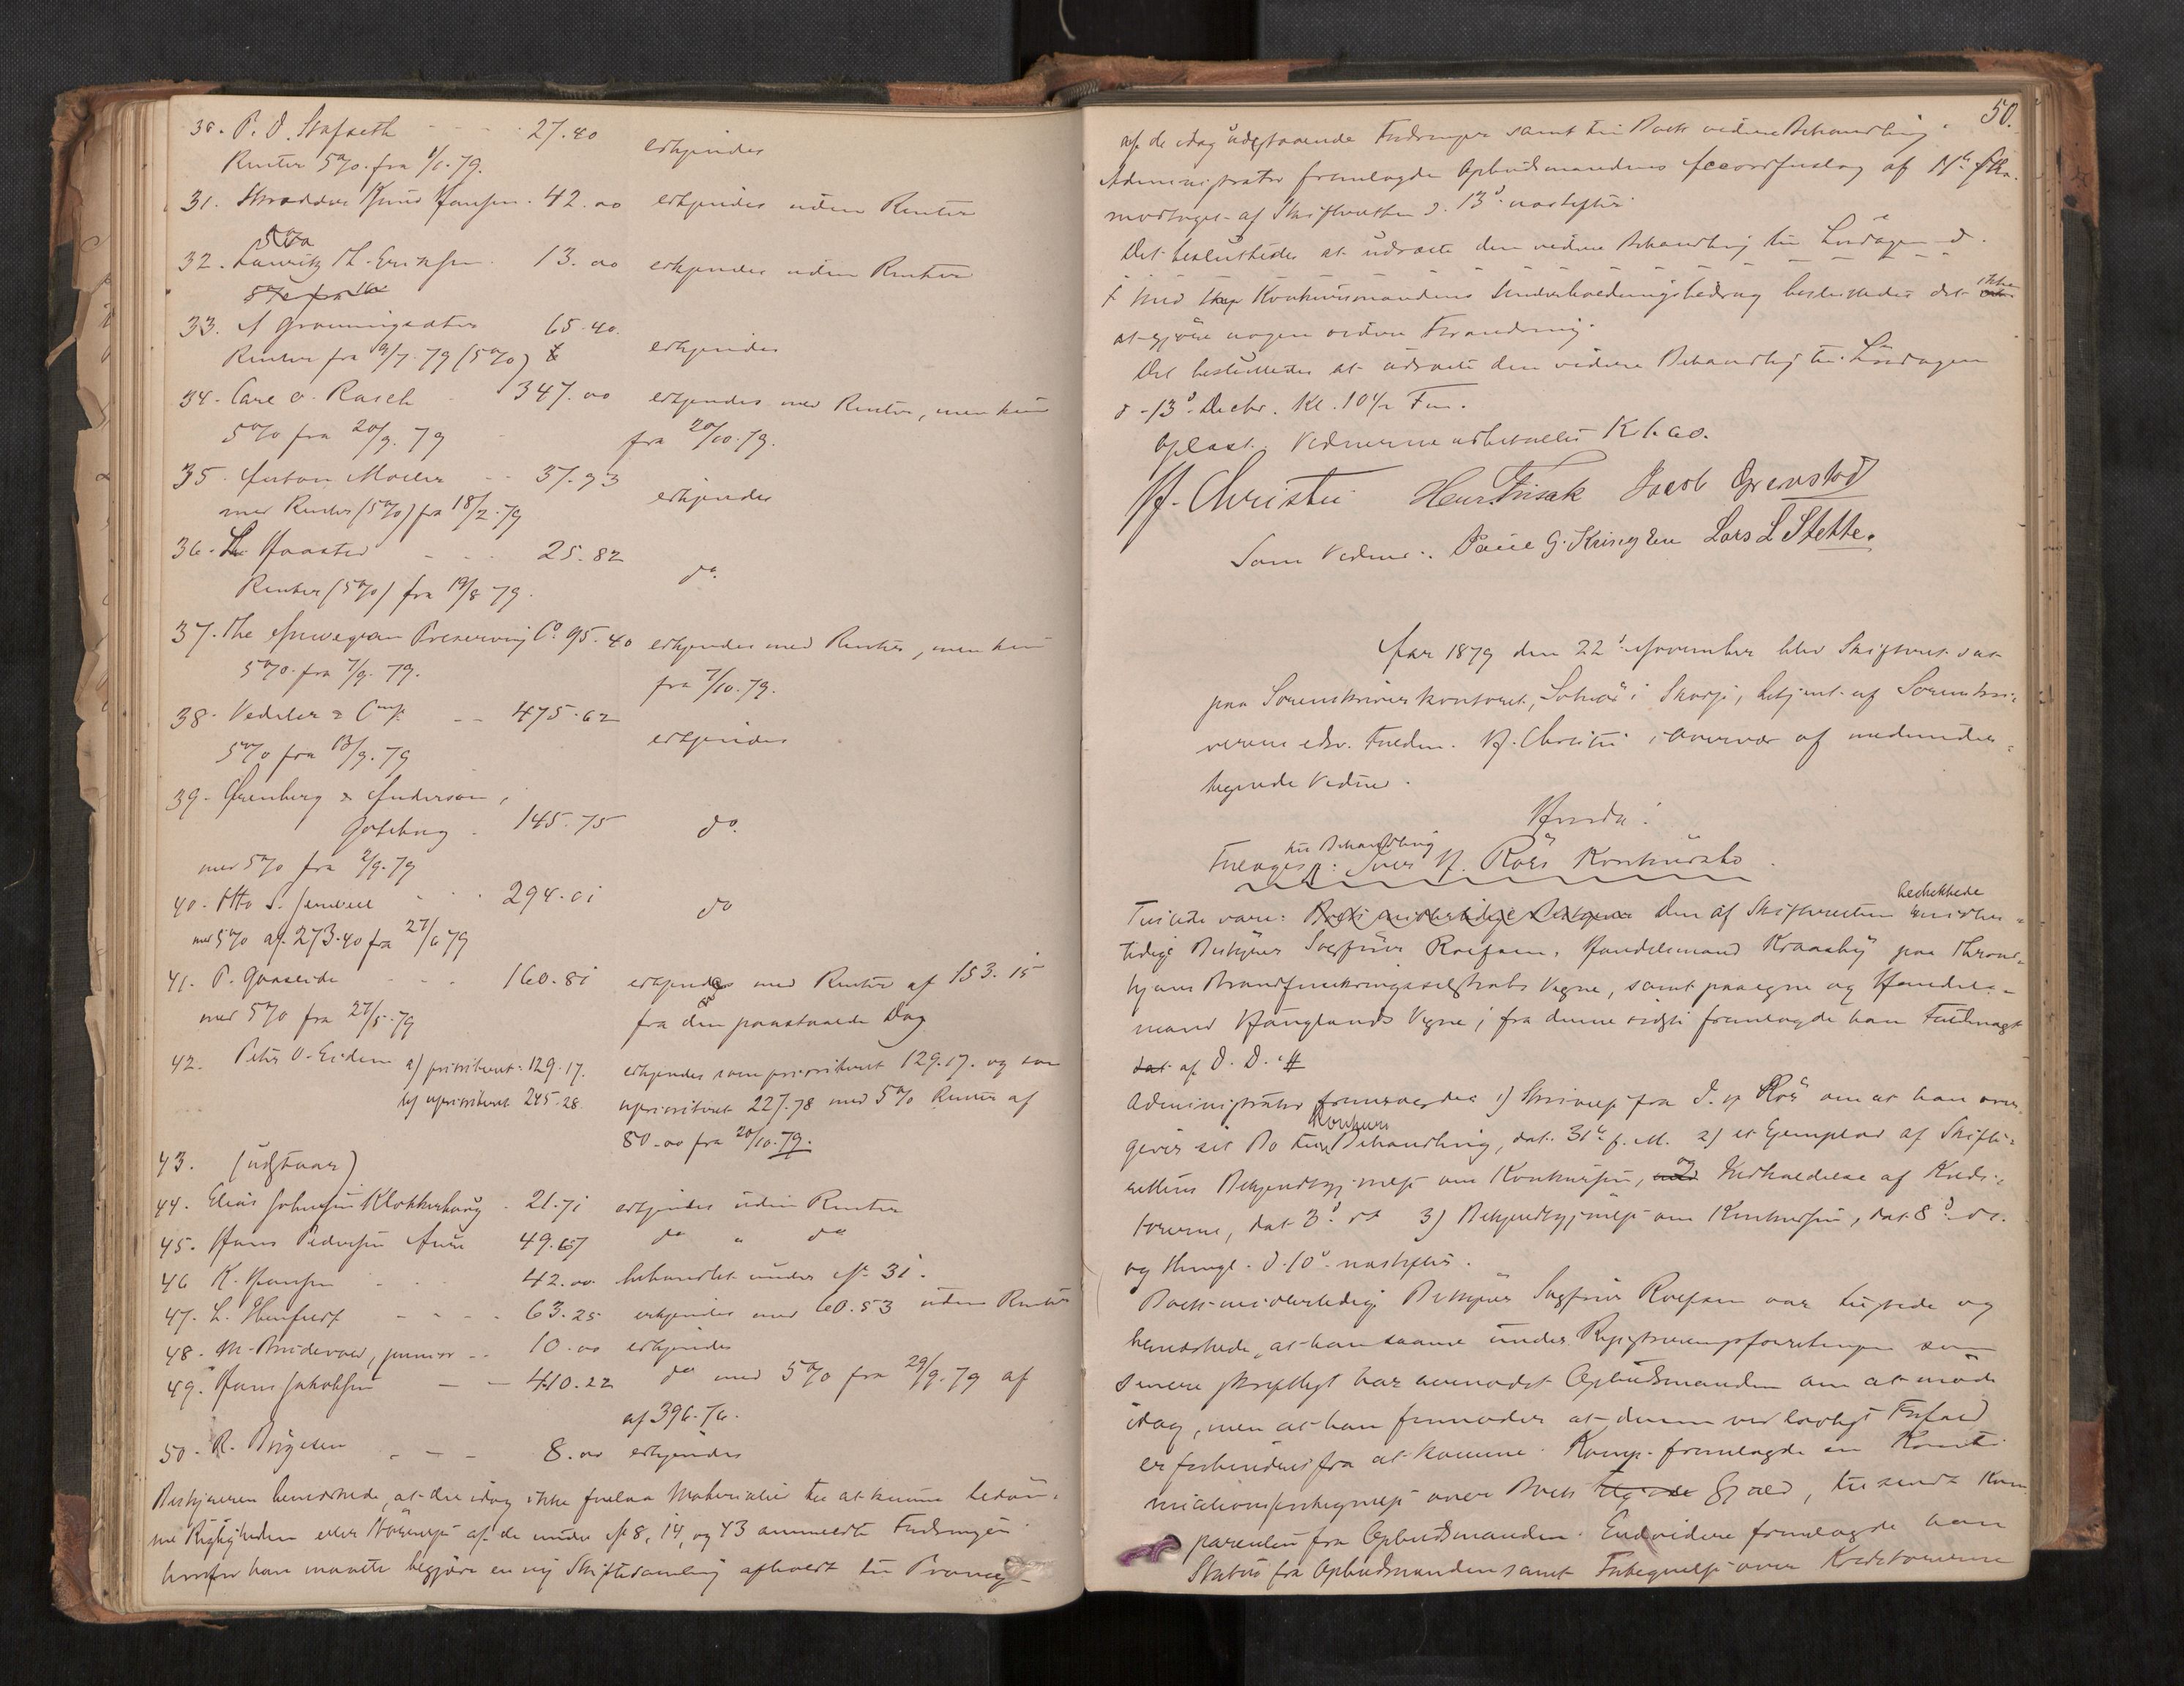 30. P. O. Stafseth - - - 27.40 erkjendes
Renter 5% fra 1/1.79.
31. Skrædder Knud Hansen. 42.00 erkjendes uden Renter
32. Lauritz Th. Eriksen. 13.00 erkjendes uden Renter
33. A Grønningsæter 65.40.
Renter fra 9/7.79 (5%) erkjendes
34. Carl O. Rasch - 347.00 erkjendes med Renter, men kun
5% fra 20/9.79 fra 20/10.79.
35. Anton Moller - - 37.93
med Renter (5%) fra 18/2.79 erkjendes
36. Haasted - - - 25.82
Renter (5%) fra 19/8 79. do.
37. The Norwegian Preserving Co. 95.40 erkjendes med Renter, men kun
5% fra 7/9.79. fra 7/10.79.
38. Vedeler & Cmp. - - 475.62
5% fra 13/9.79 erkjendes
39. Grenberg & Anderson,
Gøteborg - 145.75 do.
med 5% fra 2/9.79
40. Otto S. - - 294.01 do
med 5% af 273.40 fra 27/6 79
41. P. Gaaseide - - - 160.81 erkjendes med Renter af 153.15
med 5% fra 27/5.79 fra den paastaaede Dag
42. Peter O. Eidem a) prioriteret: 129.17. erkjendes som prioriteret 129.17. og som
b) uprioriteret 245.28. uprioriteret 227.78 med 5% Renter af
80.00 fra 20/10.79.
43. (udstaar)
44. Elias Johnsen Klokkerhaug - 21.71 erkjendes uden Renter
45. Hans Pedersen Aure 49.67 do " do
46 K. Hansen - - - 42.00. behandlet under No 31.
47. L. - - - - 63.25 erkjendes med 60.53 uden Renter
48. M. Brudevold, junior - - 10.00 erkjendes
49. Hans Jakobsen - - 410.22 do med 5% fra 29/9.79 af
af 396.76.
50. R. Birgesen - - - 8.00 erkjendes
Bestyreren bemærkede, at der idag ikke forelaa Materialier til at kunne bedøm-
me Rigtigheden eller Størrelse af de under No 8, 14, og 43 anmeldte Fordringer
hvorfor han maatte begjære en ny Skiftesamling afholdt til Prøvelse
50.
af de idag udestaaende Fordringer samt til Boets videre Behandling.
Administrator fremlagde Opbudsmandens Accordforslag af
modtaget af Skifteretten d. 13de næstefter.
Det besluttedes at udsætte den videre Behandling til Lørdagen d.
I Konkursmandens Underholdningsbidrag besluttedes det ikke
at gjøre nogen videre Forandring.
Det besluttedes at udsætte den videre Behandling til Lørdagen
d. 13de Decbr. Kl. 10½ Fm.
Oplæst. Vidnerne udbetaltes K 1.60.
W. Christie Henr Frisak Jacob Grønstad
Som Vidner: Paul G. Kringlen Lars L Slette.
Aar 1879 den 22de November blev Skifteret sat
paa Sorenskriverkontoret, Solnør i Skodje, betjent af Sorenskri-
veren edsv. Fuldm. W. Christie i Overvær af undertegnede
tegnede Vidner.
Hvorda:
til Behandling
Foretoges: Sivert H. Røes Konkursbo.
beskikkede
Tilstede vare: Den af Skifteretten midler-
tidige Bestyrer Sagfører Roefsen, Handelsmand Kraasby paa Thrond-
hjems Brandforsikringsselskabs Vegne, samt paa egne og Handels-
mand Hauglands Vegne; fra denne sidste fremlagde han Fuldmagt
af D. D.
Administrator fremlagde 1) Skrivelse fra S. H. Røe om at han over-
giver sit Bo til Konkurs Behandling, dat. 31te f. M. 2) et Exemplar af Skifte-
rettens Bekjendtgjørelse om Konkursen, og Indkaldelse af Kredi-
torerne, dat 3de ds 3) Bekjendtgjørelse om Konkursen, dat 8de ds.
og thingl. d. 10de næstefter.
Boets midlertidige Bestyrer Sagfører Roefsen var tilstede og
bemærkede, at han saavel under Registreringsforretningen som
senere skriftligt har anmodet Opbudsmanden om at møde
idag, men at han formoder at denne ved lovligt Forfald
er forhindret fra at komme. Komp. fremlagde en
over Boets Gjæld, tilsendt Kom-
parenten fra Opbudsmanden. Endvidere fremlagde han
Status fra Opbudsmanden samt Fortegnelse over Kreditorerne